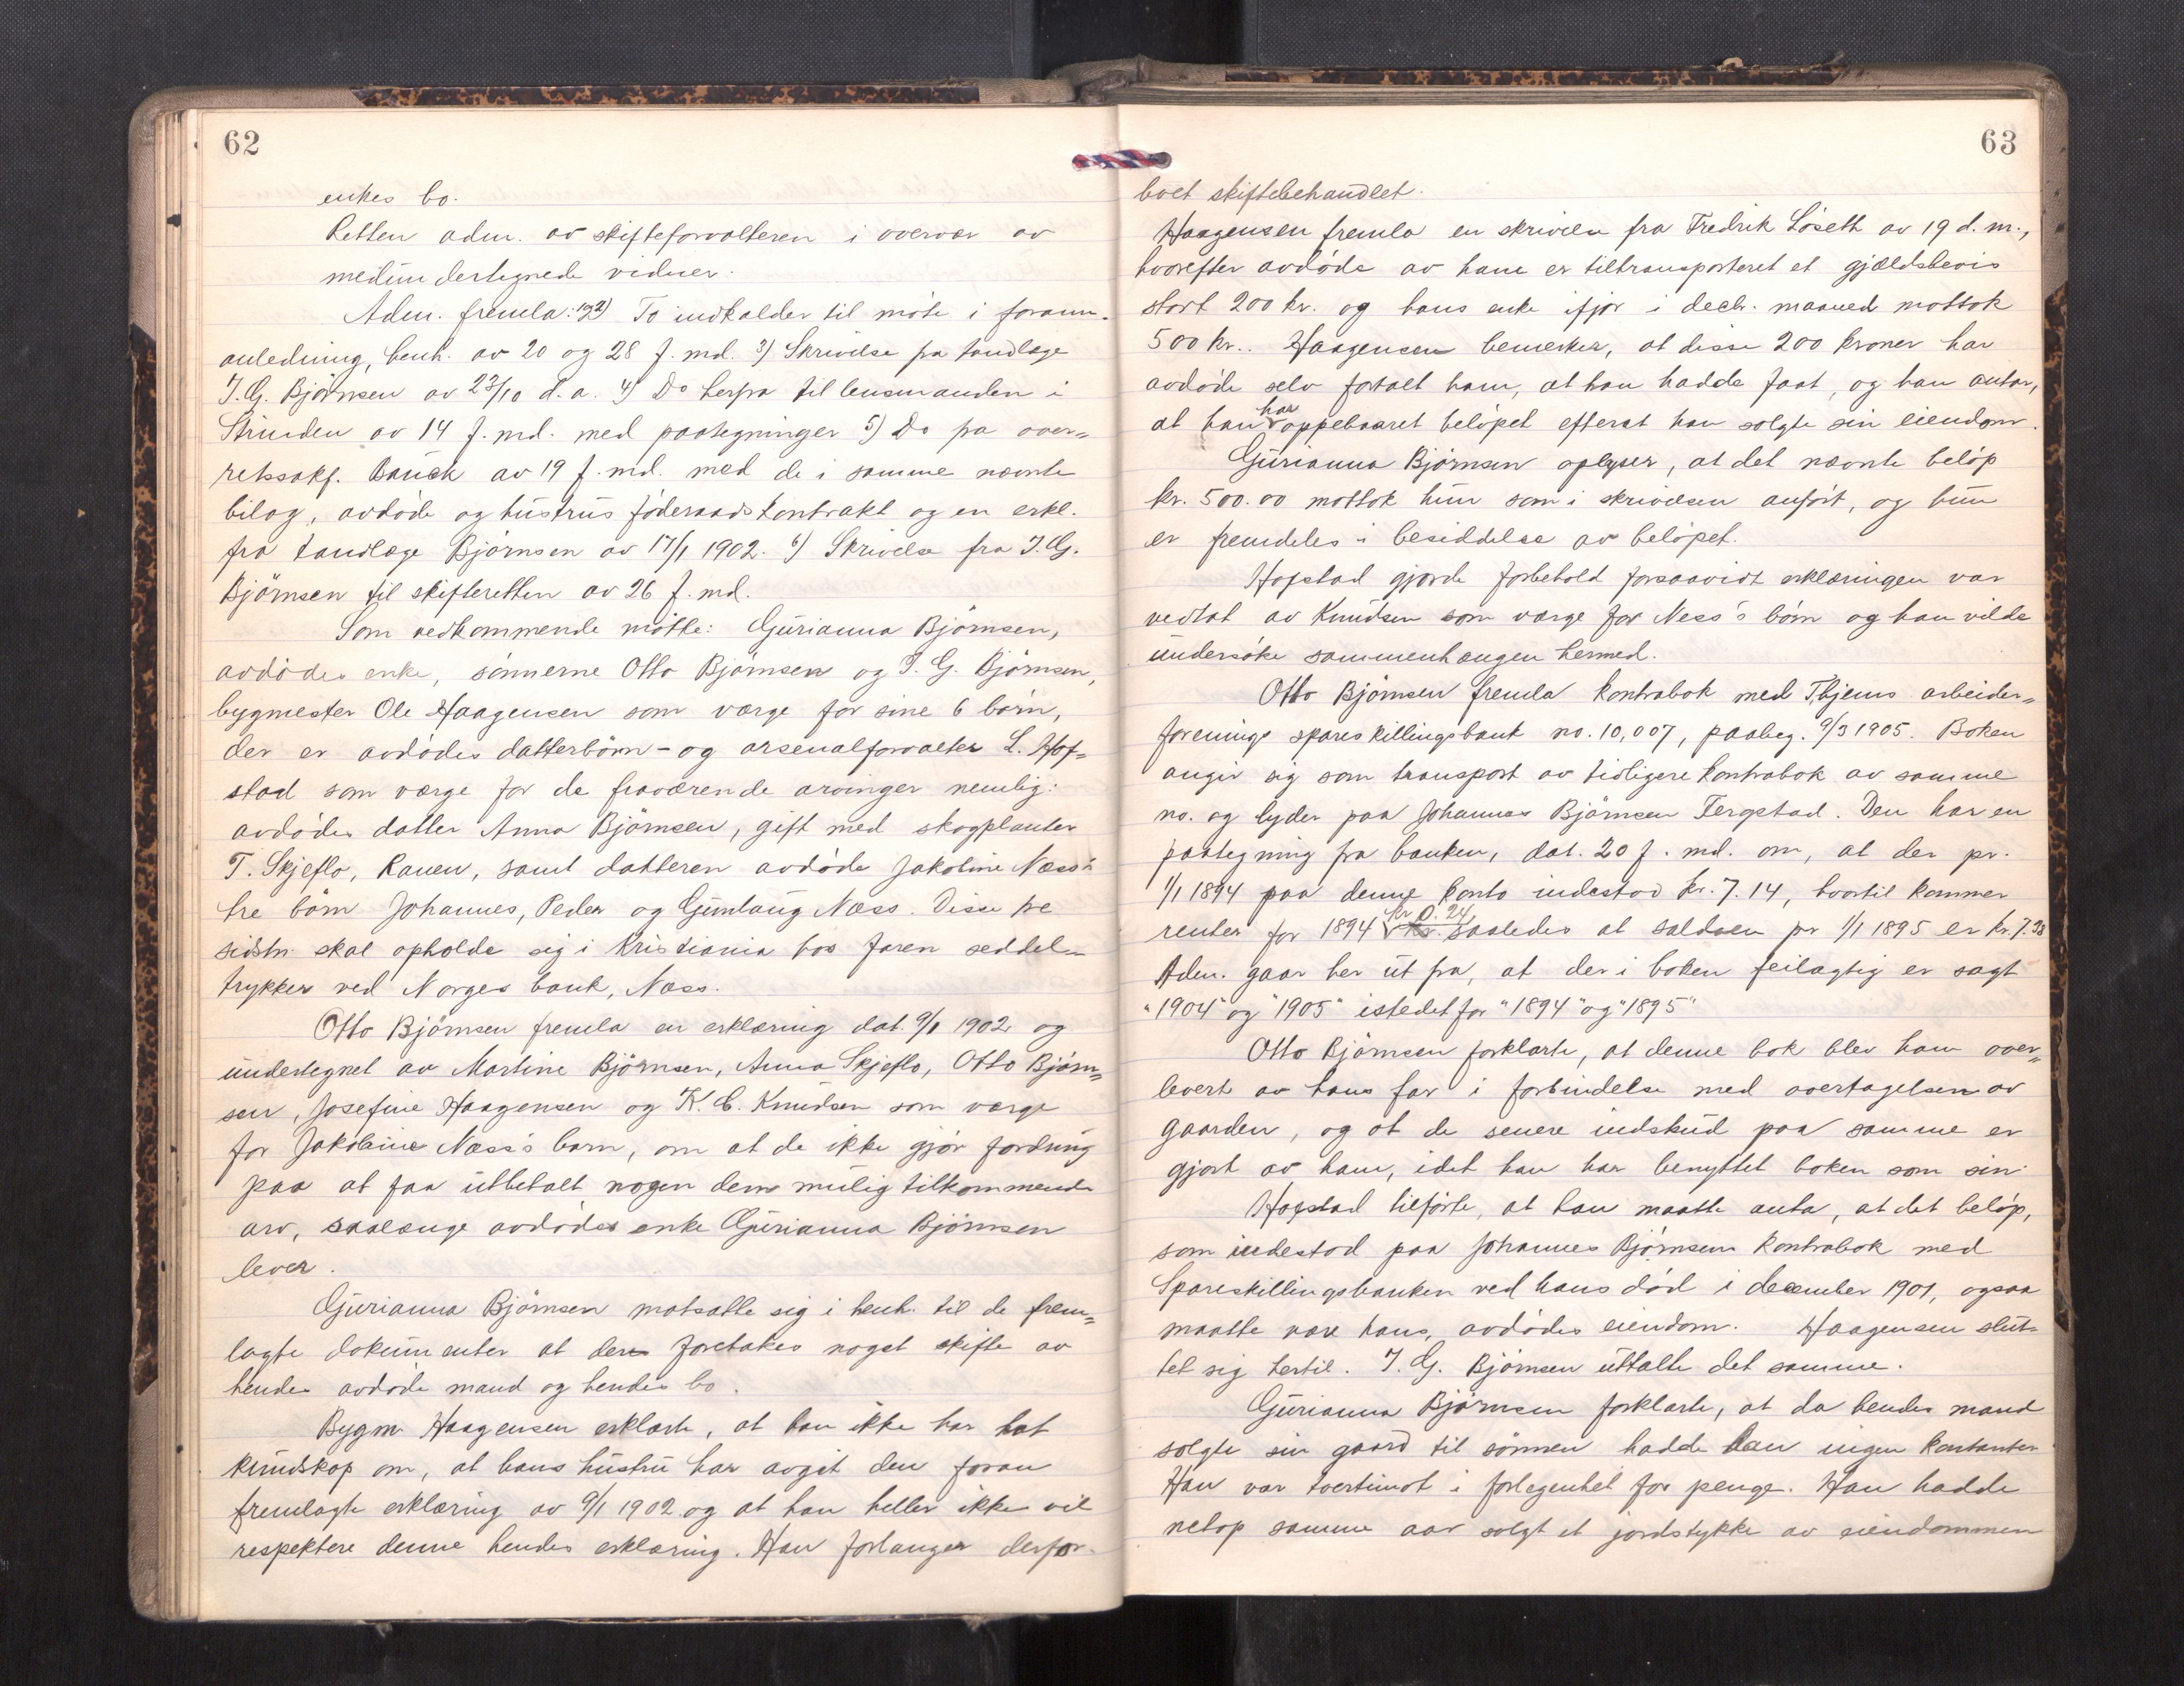 62
enkes bo.
Retten adm. av skifteforvalteren i overvær av
medundertegnede vidner.
Adm. fremla: 1) 2) To indkalder til møte i foran-
anledning, henh. av 20 og 28 f. md. 3) Skrivelse fra tandlæge
J. G. Bjørnsen av 23/10 d. a. 4) Do herfra til lensmanden i
Strinden av 14 f. md. med paategninger 5) Do fra over-
retssakf. Bauck av 19 f. md. med de i samme nævnte
bilag, avdøde og hustrus føderaadskontrakt og en erkl.
fra tandlæge Bjørnsen av 17/1 1902. 6) Skrivelse fra J. G.
Bjørnsen til skifteretten av 26 f. md.
Som vedkommende møtte: Gurianna Bjørnsen,
avdødes enke, sønnerne Otto Bjørnsen og J. G. Bjørnsen,
bygmester Ole Haagensen som værge for sine 6 børn,
der er avdødes datterbørn - og arsenalforvalter L. Hof-
stad som værge for de fraværende arvinger nemlig:
avdødes datter Anna Bjørnsen, gift med skogplanter
T. Skjeflo, Ranen, samt datteren avdøde Jakobine Næss's
tre børn Johannes, Peder og Gunlaug Næss. Disse tre
sidstn. skal opholde sig i Kristiania hos faren seddel-
trykker ved Norges bank, Næss.
Otto Bjørnsen fremla en erklæring dat. 9/1 1902 og
undertegnet av Martine Bjørnsen, Anna Skjeflo, Otto Bjørn-
sen, Josefine Haagensen og K. C. Knudsen som værge
for Jakobine Næss's barn, om at de ikke gjør fordring
paa at faa utbetalt nogen dem mulig tilkommende
arv, saalænge avdødes enke Gurianna Bjørnsen
lever.
Gurianna Bjørnsen motsatte sig i henh. til de frem-
lagte dokumenter at der foretakes noget skifte av
hendes avdøde mand og hendes bo.
Bygm. Haagensen erklærte, at han ikke har hat
kundskap om, at hans hustru har avgit den foran
fremlagte erklæring av 9/1 1902 og at han heller ikke vil
respektere denne hendes erklæring. Han forlanger derfor
63
boet skiftebehandlet.
Haagensen fremla en skrivelse fra Fredrik Løseth av 19 d. m.,
hvorefter avdøde av ham er tiltransporteret et gjældsbevis
stort 200 kr. og hans enke ifjor i decbr. maaned mottok
500 kr.. Haagensen bemerker, at disse 200 kroner har
avdøde selv fortalt ham, at han hadde faat, og han antar,
at han har oppebaaret beløpet efterat han solgte sin eiendom.
Gurianna Bjørnsen oplyser, at det nævnte beløp
kr. 500.00 mottok hun som i skrivelsen anført, og hun
er fremdeles i besiddelse av beløpet.
Hofstad gjorde forbehold forsaavidt erklæringen var
vedtat av Knudsen som værge for Ness's børn og han vilde
undersøke sammenhængen hermed.
Otto Bjørnsen fremla kontrabok med Thjems arbeider-
forenings spareskillingsbank no. 10,007, paabeg. 9/3 1905. Boken
angir sig som transport av tidligere kontrabok av samme
no. og lyder paa Johannes Bjørnsen Fergstad. Den har en
paategning fra banken, dat. 20 f. md. om, at der pr.
1/1 1894 paa denne konto indestod kr. 7.14, hvortil kommer
renter for 1894 kr 0.24, saaledes at saldoen pr 1/1 1895 er kr. 7.38
Adm. gaar her ut fra, at der i boken feilagtig er sagt
"1904" og "1905" istedetfor "1894" og "1895"
Otto Bjørnsen forklarte, at denne bok blev ham over-
levert av hans far i forbindelse med overtagelsen av
gaarden, og at de senere indskud paa samme er
gjort av ham, idet han har benyttet boken som sin.
Hofstad tilførte, at han maatte anta, at det beløp,
som indestod paa Johannes Bjørnsens kontrabok med
Spareskillingsbanken ved hans død i december 1901, ogsaa
maatte være hans, avdødes eiendom. Haagensen slut-
tet sig hertil. J. G. Bjørnsen uttalte det samme.
Gurianna Bjørnsen forklarte, at da hendes mand
solgte sin gaard til sønnen hadde han ingen kontanter
Han var tvertimot i forlegenhet for penge. Han hadde
netop samme aar solgt et jordstykke av eiendommen